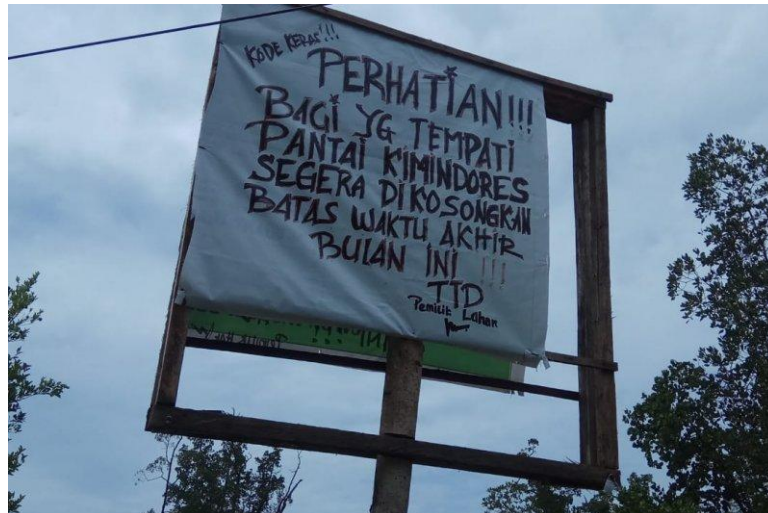 KODE KERAS!!!
PERHATIAN!!!
BAGI YG TEMPATI
PANTAI KIMINDORES
SEGERA DIKOSONGKAN
BATAS WAKTU AKHIR
BULAN INI !!!
TTD
Pemilik Lahan